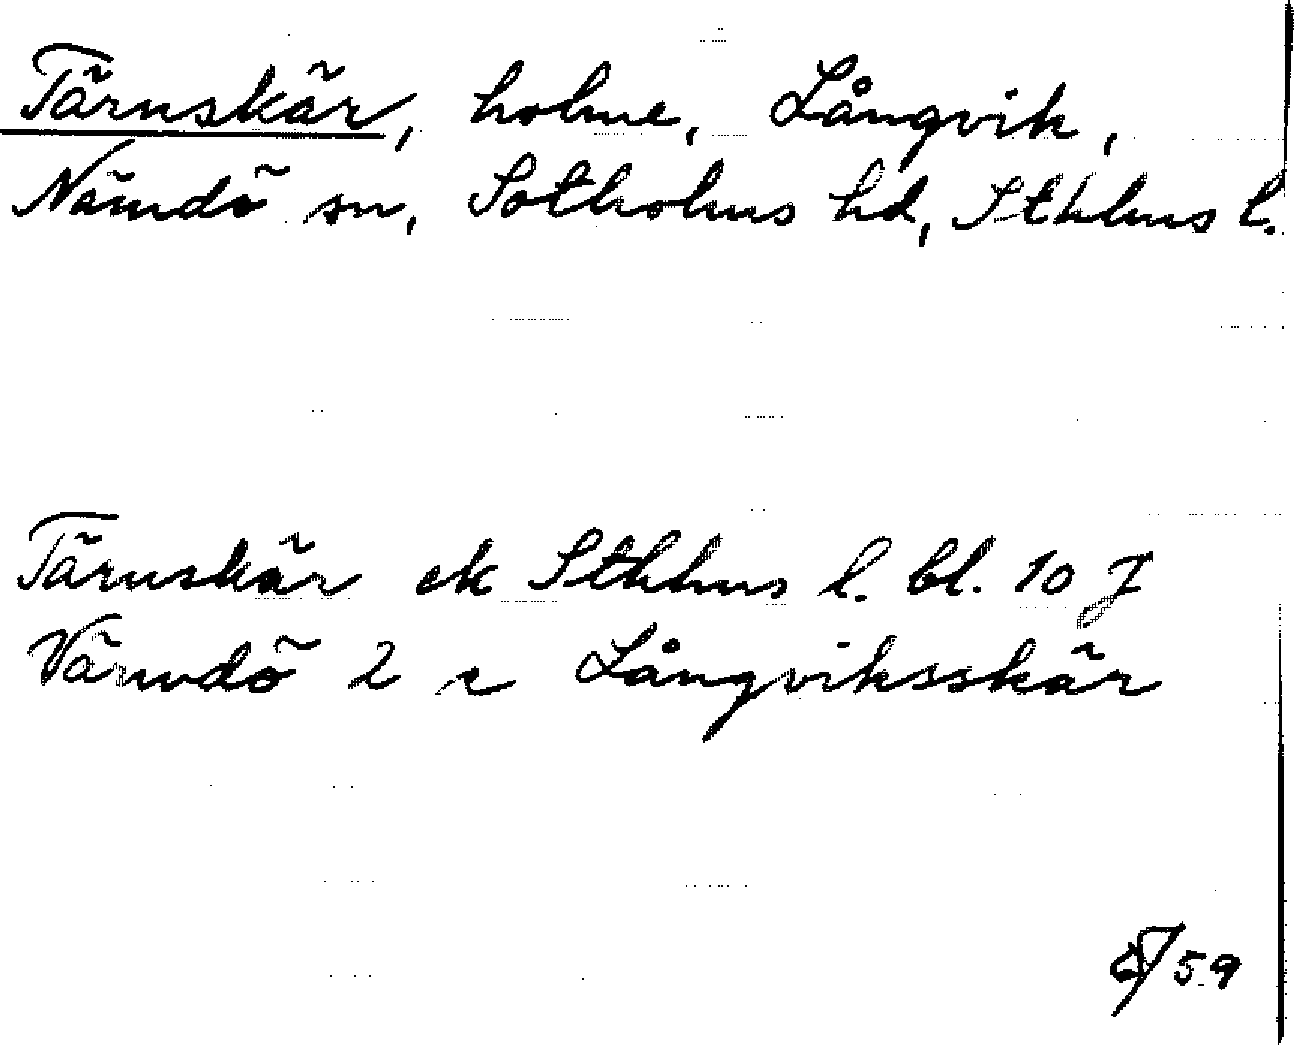 Tärnskär, holme, Långvik,
Nämdö sn, Sotholms hd, Sthlms l.
Tärnskär ek Sthlms l. bl. 10 J
Värmdö 2 c Långviksskär
59